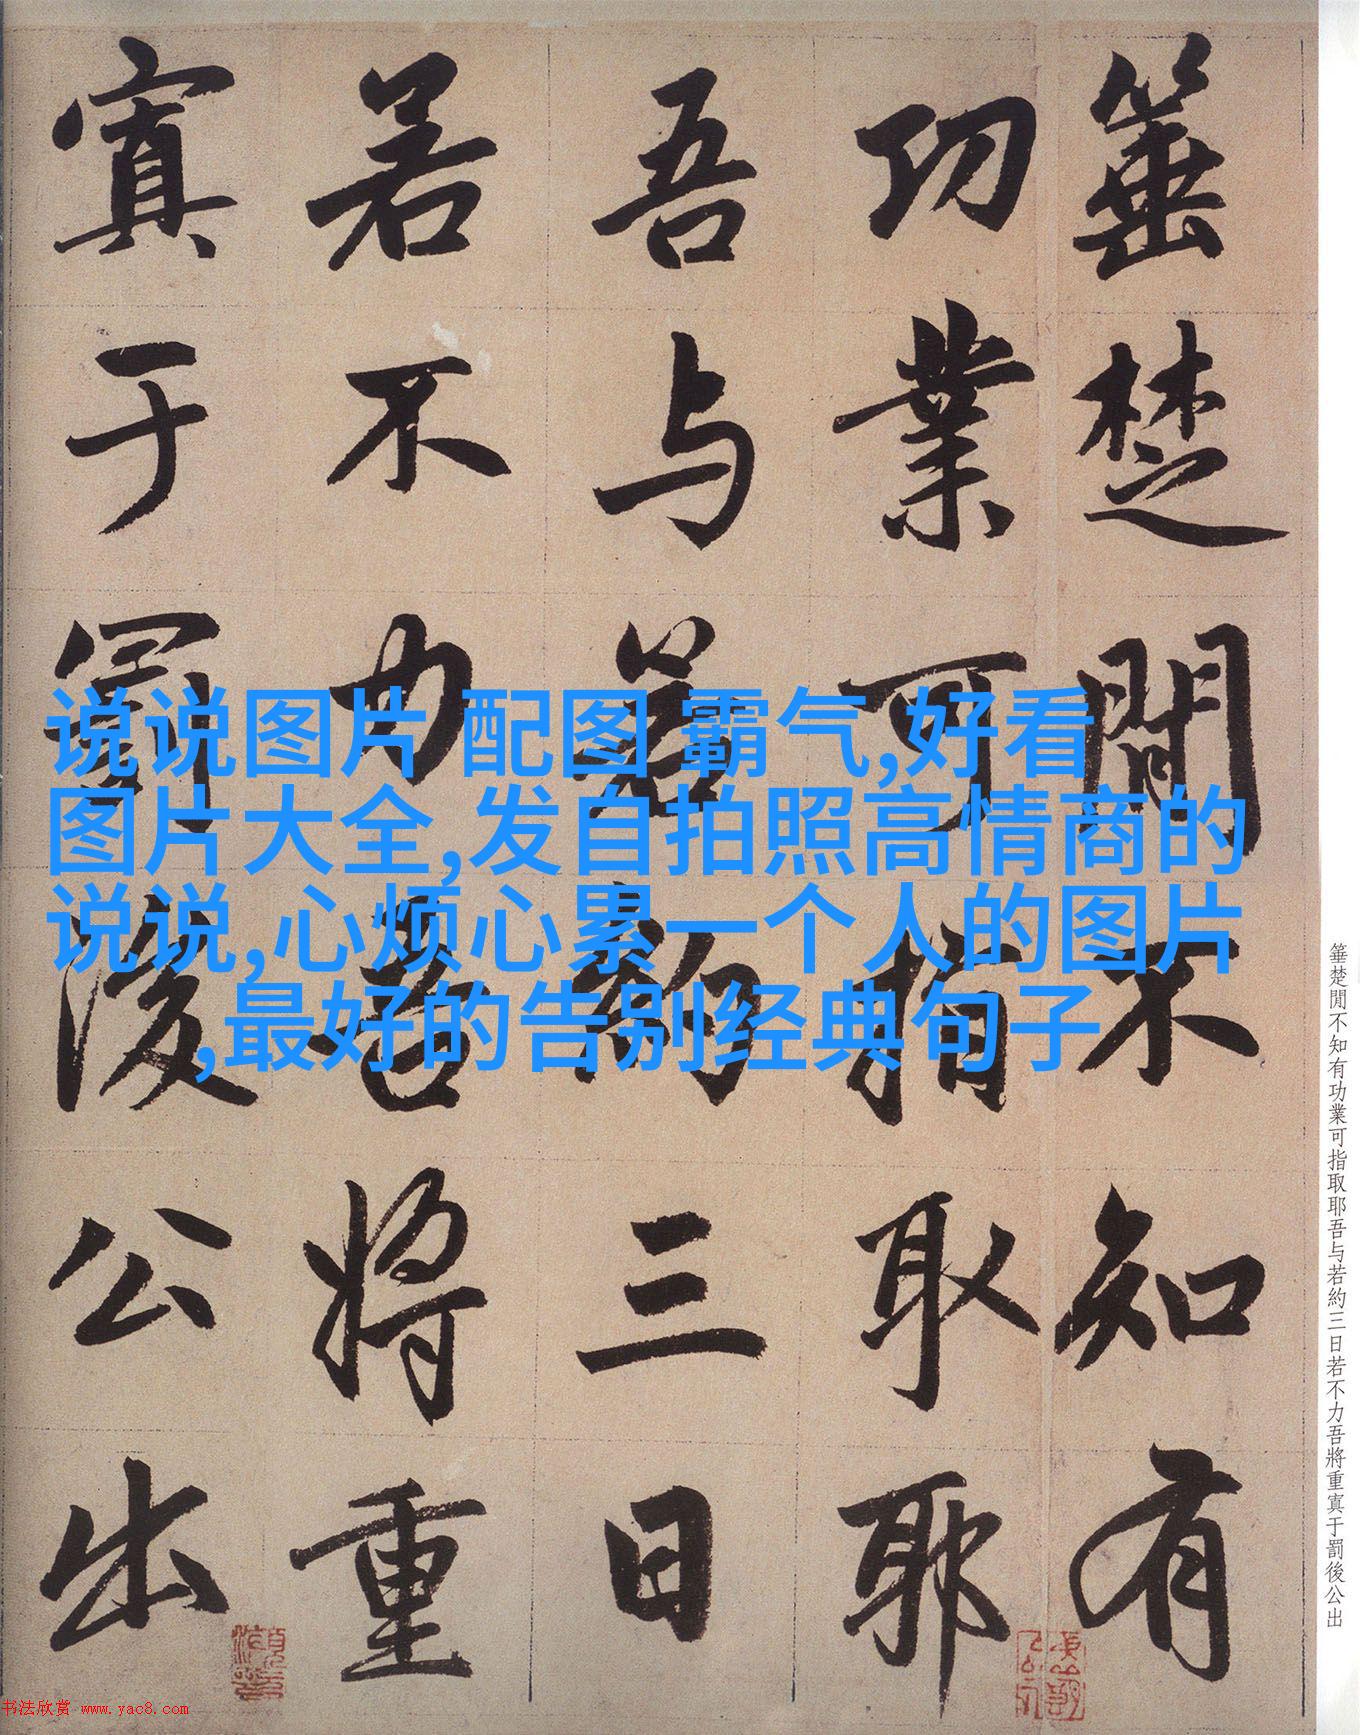 箠楚閒不知有
功業可指取耶
吾与若約三日
若不力吾將重
寘于罰後公出
说说图片 配图 霸气,好看
图片大全,发自拍照高情商的
说说,心烦心累一个人的图片
,最好的告别经典句子
箠楚閒不知有功業可指取耶吾与若約三日若不力吾將重寘于罰後公出
书法欣赏 www.yac8.com